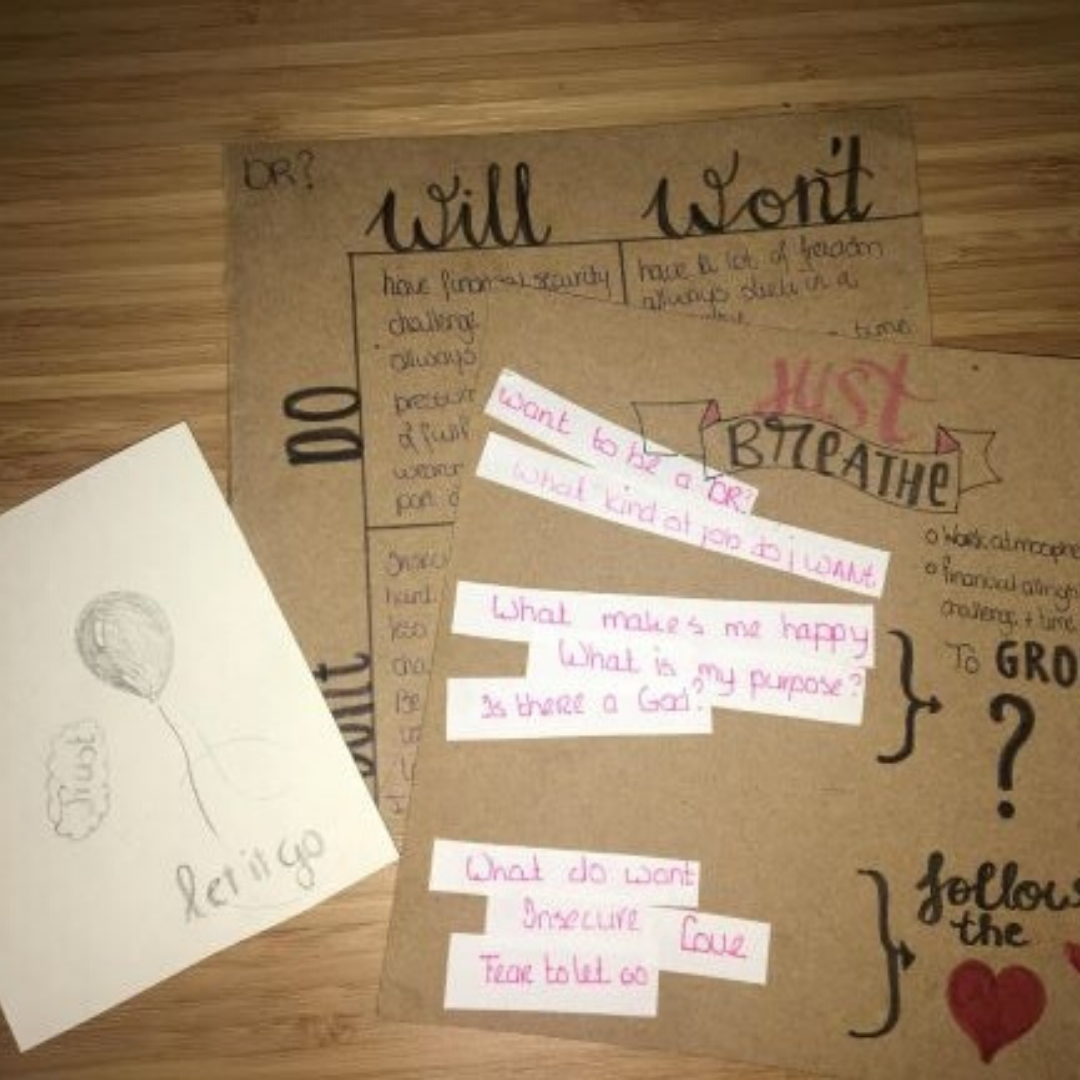 DR?
Will Won't
have financial security
challenge
always
of
part
have a lot of freedom
always stuck in a
time
DO
Don't
hard
less
JUST
BREATHE
Want to be a DR?
What kind of job do i WANT
o Work atmosphe
o financial
challenge + time
What makes me happy
What is my purpose?
Is there a God?
To GRO
?
What do want
Insecure
Love
Fear to let go
follow
the
Trust
let it go